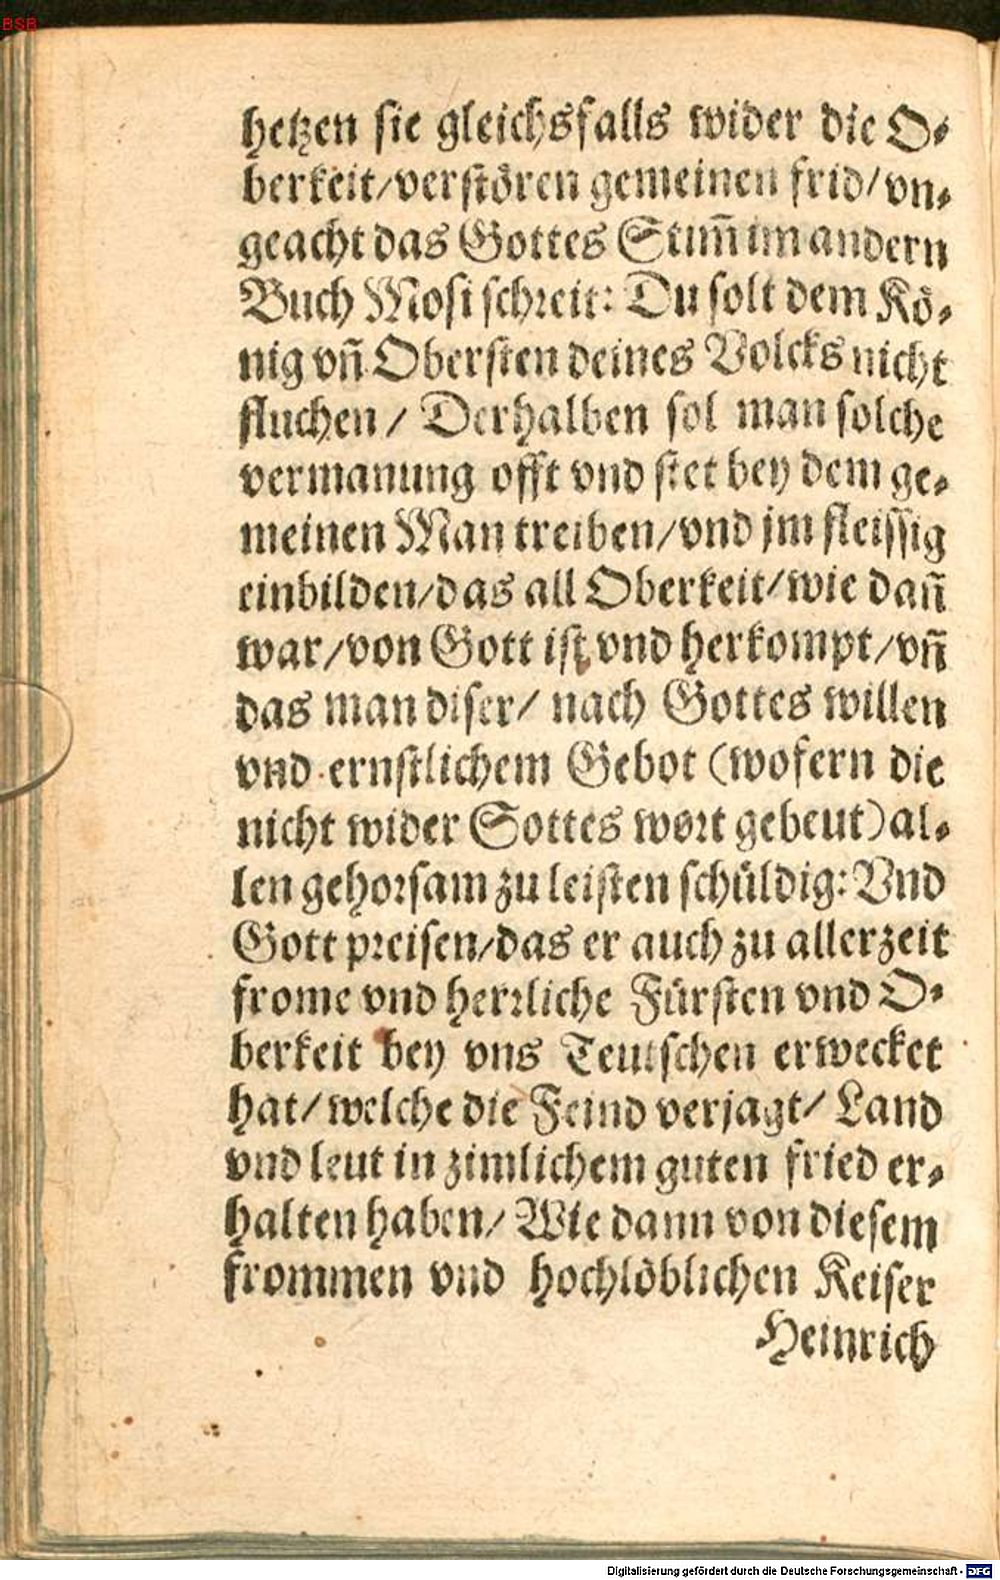 BSB
hetzen sie gleichsfalls wider die O⸗
berkeit/verstören gemeinen frid/vn⸗
geacht das Gottes Stim̄ im andern
Buch Mosi schreit: Du solt dem Kö⸗
nig vn̄ Obersten deines Volcks nicht
fluchen/ Derhalben sol man solche
vermanung offt vnd stet bey dem ge⸗
meinen Man treiben/vnd jm fleissig
einbilden/das all Oberkeit/wie dan̄
war/von Gott ist vnd herkompt/vn̄
das man diser/ nach Gottes willen
vnd ernstlichem Gebot (wofern die
nicht wider Gottes wort gebeut) al⸗
len gehorsam zu leisten schüldig: Vnd
Gott preisen/das er auch zu allerzeit
frome vnd herrliche Fürsten vnd O⸗
berkeit bey vns Teutschen erwecket
hat/ welche die Feind verjagt/ Land
vnd leut in zimlichem guten fried er⸗
halten haben/ Wie dann von diesem
frommen vnd hochlöblichen Keiser
Heinrich
Digitalisierung gefördert durch die Deutsche Forschungsgemeinschaft - DFG